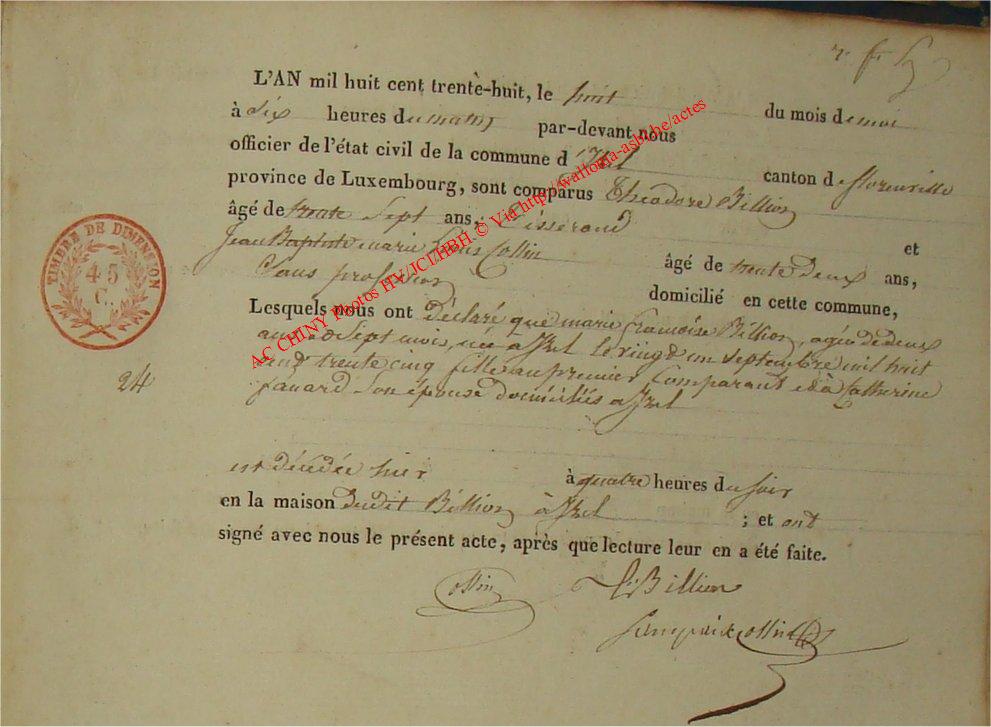 L'AN mil huit cent trente-huit, le huit du mois de mai
à dix heures du matin par-devant nous
officier de l'état civil de la commune d'Izel canton de florenville
province de Luxembourg, sont comparus Théodore Billion
âgé de trente Sept ans, Tisserand et
Jean Baptiste marie Collin âgé de trente deux ans,
Sans profession domicilié en cette commune,
Lesquels nous ont déclaré que marie françoise Billion, agée de deux
ans Sept mois, née à Izel le vingt un Septembre mil huit
cent trente cinq fille au premier Comparant et à Catherine
Son épouse domiciliés à Izel
est décédée hier à quatre heures du soir
en la maison dudit Billion à Izel ; et ont
signé avec nous le présent acte, après que lecture leur en a été faite.
Collin Billion
Collin
TIMBRE DE DIMENSION
45
C.
24
AC CHINY Photos HV/JCT/HBH. © Via http://wallonia-asbl.be/actes